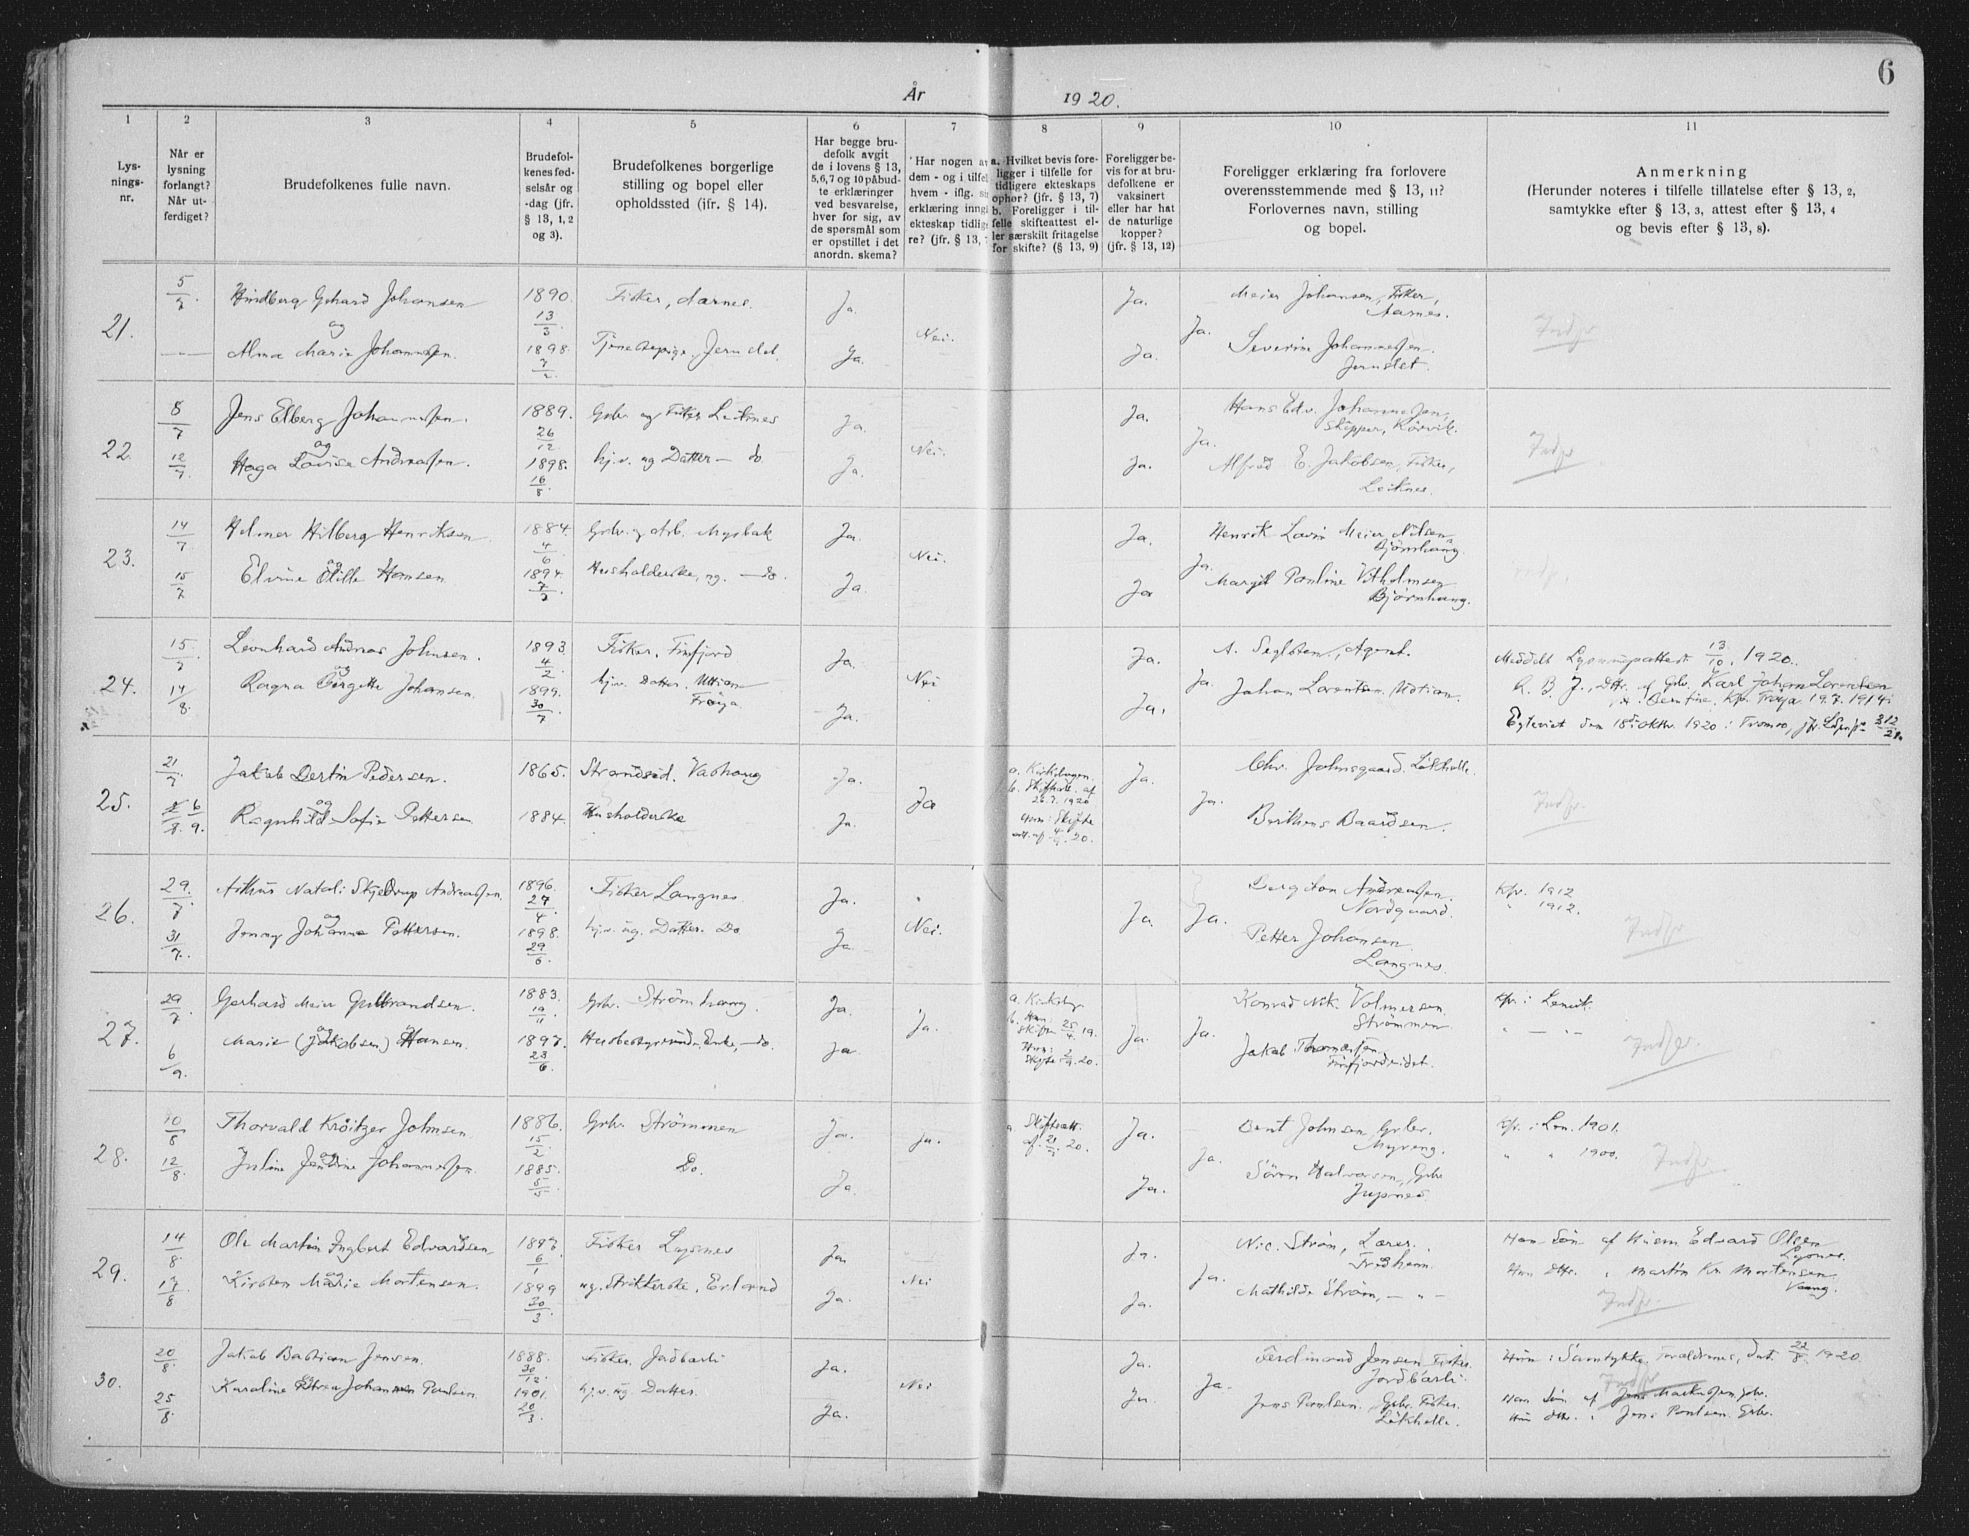 6
År 1920.
1 2 3 4 5 6 7 8 9 10 11
Lys-
nings-
nr.
Når er
lysning
forlangt?
Når ut-
ferdiget?
Brudefolkenes fulle navn.
Brudefol-
kenes fød-
selsår og
-dag (jfr.
§ 13, 1, 2
og 3).
Brudefolkenes borgerlige
stilling og bopel eller
opholdssted (ifr. § 14).
Har begge bru-
defolk avgit
de i lovens § 13,
5,6,7 og 10 påbud-
te erklæringer
ved besvarelse,
hver for sig, av
de spørsmål som
er opstillet i det
anordn. skema?
Har nogen av
dem - og i tilfel
hvem - iflg. si
erklæring inngå
ekteskap tidlig
re? (jfr. § 13,
a. Hvilket bevis fore-
ligger i tilfelle for
tidligere ekteskaps
ophør? (jfr. § 13, 7)
b. Foreligger i til-
felle skifteattest el-
ler særskilt fritagelse
for skifte? (§ 13, 9)
Foreligger be-
vis for at bru-
defolkene er
vaksinert
eller har hat
de naturlige
kopper?
(jfr. § 13, 12)
Foreligger erklæring fra forlovere
overensstemmende med § 13, 11?
Forlovernes navn, stilling
og bopel.
Anmerkning
(Herunder noteres i tilfelle tillatelse efter § 13, 2,
samtykke efter § 13, 3, attest efter § 13, 4
og bevis efter § 13, 8).
21.
5/7.
Johansen
og
Alma Marie Johannessen.
1890.
13/3.
1898.
7/2.
Fisker, Aarnes.
Ja.
Ja.
Nei.
Ja.
Ja.
Ja.
Meier Johansen, Fisker,
Aarnes.
Severine Johannessen.
Indfr
22.
8/7
12/7.
Jens Elberg Johannessen.
og
Lovise Andreassen.
1889.
26/12
1898.
16/8
Gbr. og Fisker Leiknes
hj.v. og Datter - do
Ja.
Ja.
Nei.
Ja.
Ja.
Ja.
Hans Edv. Johannessen,
Skipper, Kårvik.
Alfred E. Jakobsen, Fisker,
Leiknes.
Indfr
23.
14/7
15/7
Helmer Hilberg Henriksen.
og
Elvine Otilie Hansen
1884.
4/6
1894.
7/7.
Gbr. og Arb.
Husholderske, ug. - do.
Ja.
Ja.
Nei.
Ja.
Ja
Ja.
Henrik Lavin Meier Nilsen,
Bjørnhaug.
Margit Pauline Vilhelmsen
Bjørnhaug.
24.
15/7
14/8.
Leonhard Andreas Johnsen.
og
Ragna Bergette Johansen.
1893.
4/2.
1899.
30/7
Fisker, Finfjord
hj.v. Datter. Uttian
Frøya.
Ja.
Ja.
Nei
Ja.
Ja.
Ja.
Agent.
Johan Lorentsen, Uttian.
Meddelt Lysningsattest 13/10. 1920.
R. B. J., Dtr. af Gbr. Karl Johan Lorentsen
Bentine. Kfr. Frøya 19.7.1914.
Egteviet den 18de Oktbr. 1920 i Tromsø,
25.
21/7
6/9.
Jakob Pedersen.
og
Ragnhild Sofie Pettersen
1865.
1884.
Strandsid.
Husholderske
Ja.
Ja.
Ja
a. Kirkebogen.
b. Skifteatt. af
26.7.1920
Hun: Skifte
Ja.
Ja.
Chr. Johnsgaard. Løkhelle.
Berthens Baardsen.
Indfr.
26.
29/7
31/7.
Natali Skjeldrup Andreassen
og
Jenny Johanne Pettersen.
1896.
27/4.
1898.
29/6
Fisker Langnes.
hj.v. ug. Datter. Do
Ja.
Ja.
Nei.
Ja.
Ja.
Andreassen.
Nordgaard.
Petter Johansen.
Langnes.
Kfr. 1912
" 1912.
Indfr
27.
29/7
6/9
Gerhard Meier Gulbrandsen.
og
Marie (Jakobsen) Hansen.
1883.
19/11
1897.
23/6
Gbr. Strømhaug
Husbestyrerinde, Enke, - do.
Ja.
Ja
Ja.
a. Kirkebog
b. Han:
Skifte 25/4 19.
Hun:
Ja.
Ja.
Konrad Nik. Volmersen
Strømmen
Jakob Thomassen.
Finfjordeidet.
Kfr. i Lenvik.
" - " -
Indfr.
28.
10/8
12/8
Thorvald Krøitzer Johnsen
og
Johannessen.
1886.
15/2
1885.
5/5
Gbr. Strømmen
Do.
Ja.
Ja.
Ja.
Skifteatt.
Ja.
Ja.
Ja.
Bent Johnsen, Gbr.
Myreng.
Søren Halvorsen, Gbr.
Kfr. i Len. 1901.
" " 1900.
Indfr.
29.
14/8
17/8
Ole Martin Ingbert Edvardsen
og
Kirsten Marie Mortensen.
1897
6/1
1899
30/3
Fisker Lysnes
ug. Strikkerske,
Ja
Ja.
Nei
Ja.
Ja.
Ja.
Nic. Strøm, Lærer.
Fredheim.
Mathilde Strøm, - " -
Han Søn af Husm. Edvard Olsen
Lysnes.
Hun Dtr. " Martin Kr. Mortensen
Vang.
Indfr.
30.
20/8
25/8
Jakob Bastian Jensen.
Karoline Paulsen.
1888.
30/12.
1901.
20/3.
Fisker. Jordbærli
hj.v. ug Datter.
Ja.
Ja.
Nei
Ja.
Ja
Ja.
Ferdinand Jensen Fisker
Jordbærli.
Jens Paulsen. Gbr. Fisker.
Løkhelle.
Hun: Samtykke Forældrenes, dat. 22/8. 1920.
Indfr
Han Søn af
Hun Dtr. " Jens Paulsen. Gbr.